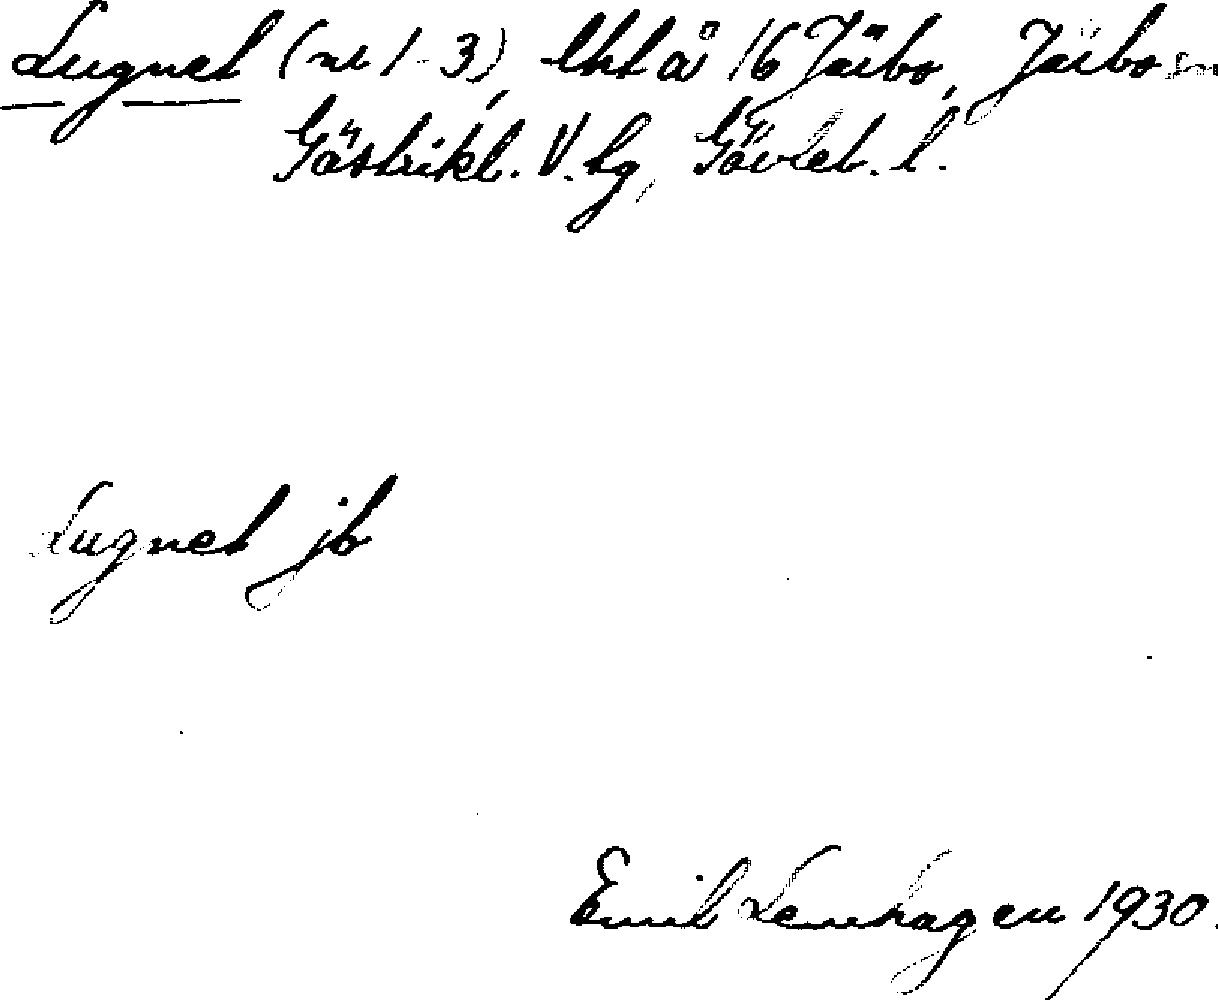 Lugnet (nr 1-3), lht å 16 Järbo, Järbo sn
Gästrikl. V. hg, Gävleb. l.
Lugnet jb
Emil Lenhagen 1930.